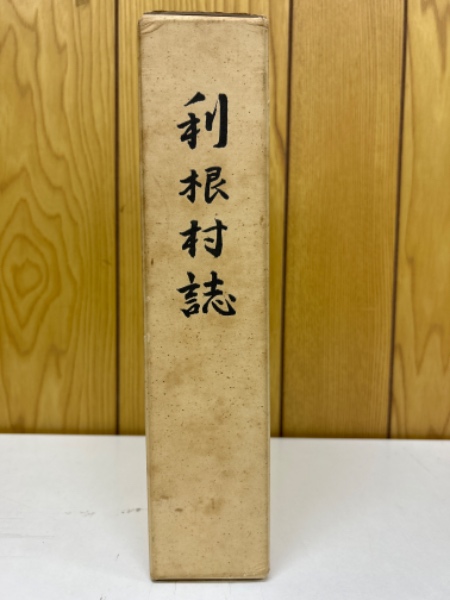 利根村誌